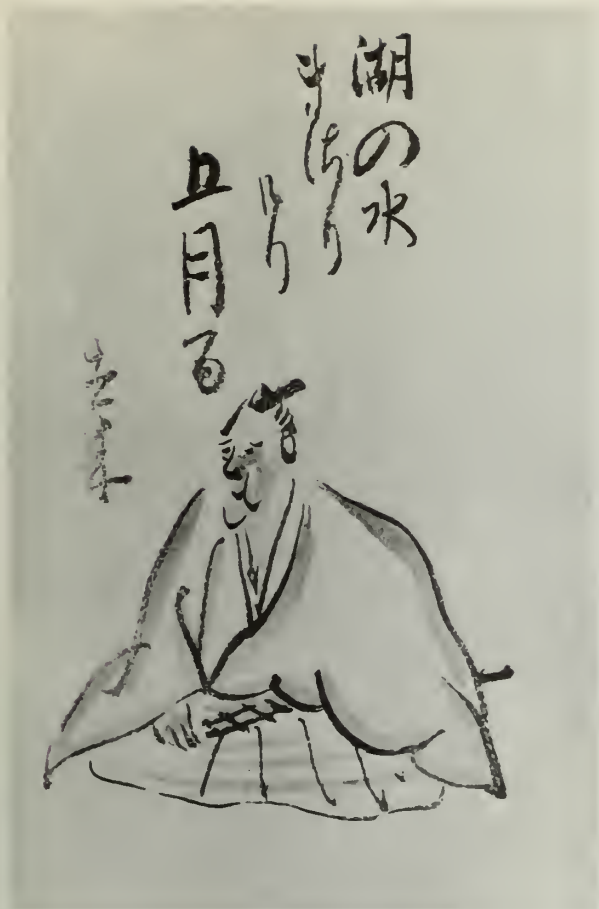 湖の水
まさり
けり
五月雨